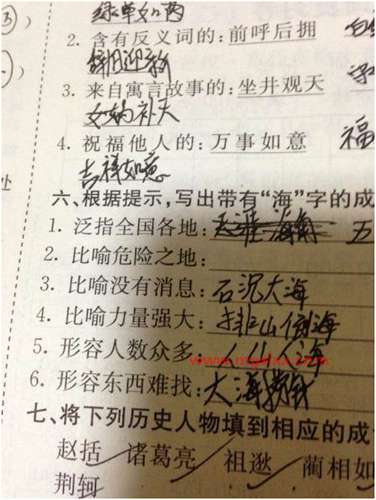 2. 含有反义词的:前呼后拥
辞旧迎新
3. 来自寓言故事的:坐井观天
女娲补天
4. 祝福他人的:万事如意 福
吉祥如意
六、根据提示,写出带有“海”字的成
1. 泛指全国各地: 天涯海角 五
2. 比喻危险之地:
3. 比喻没有消息:石沉大海
4. 比喻力量强大:排山倒海
5. 形容人数众多: 人山人海
6. 形容东西难找:大海捞针
七、将下列历史人物填到相应的成
赵括 诸葛亮 祖逖 蔺相如
荆轲